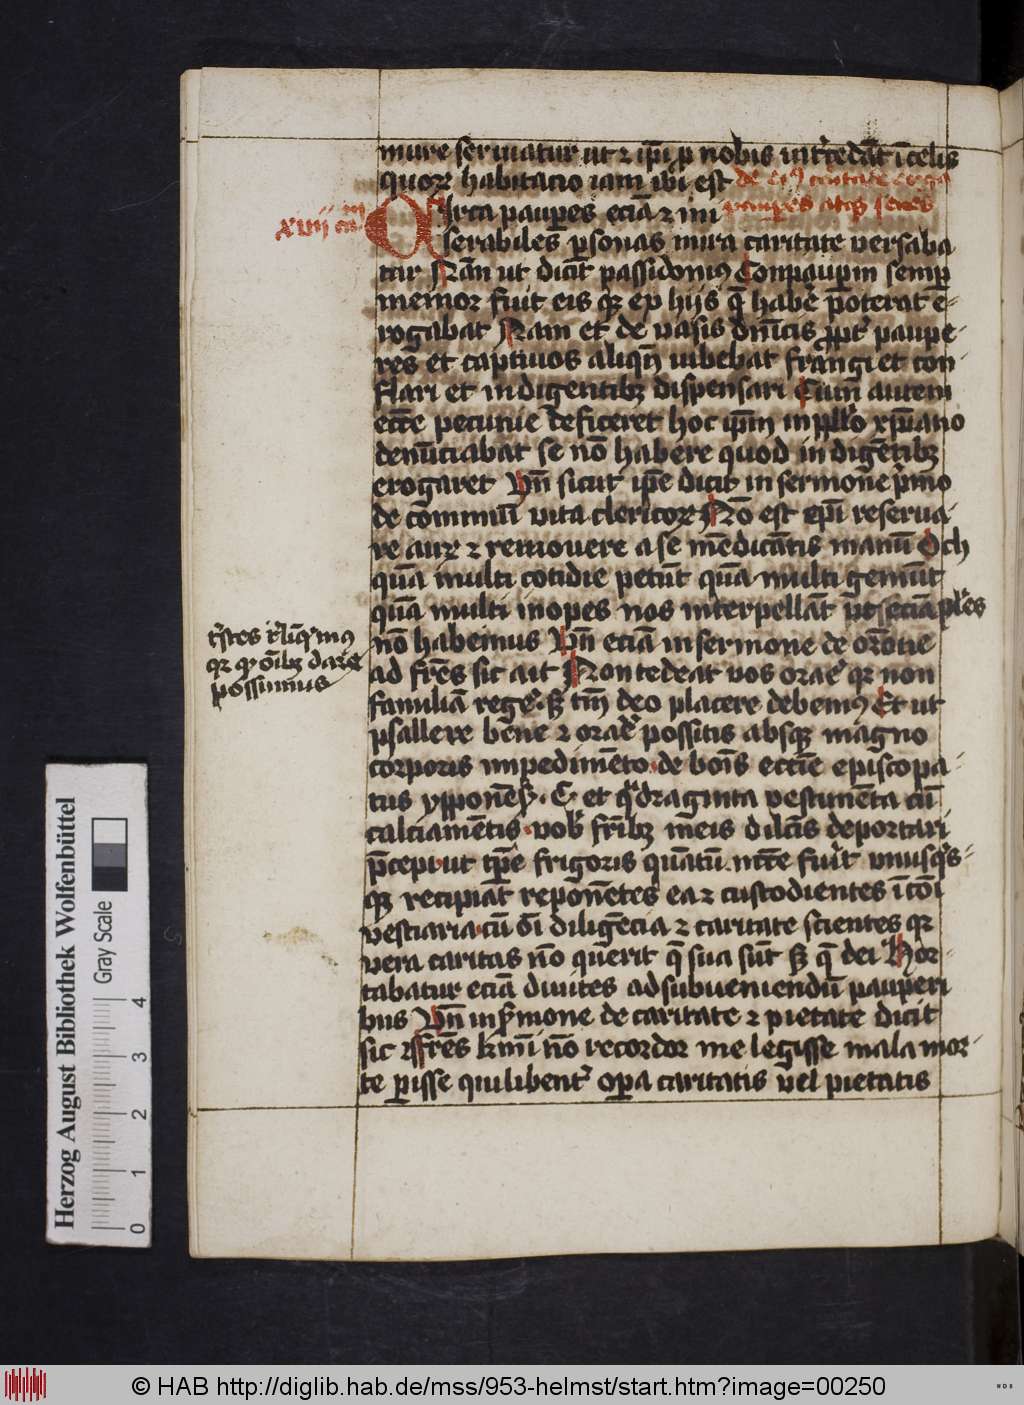 mure seruatur ut ⁊ ip̄i ꝓ nobis int̓cedāt ī celis
quoꝝ habitacio iam ibi est de eiꝰ caritate erga
pauperes atqꝫ senes
xviij cam
CIrca pauperes eciā ⁊ mi
serabiles ꝑsonas mira caritate versaba
tur Nam ut dicit possidoniꝰ Conpauperū semꝑ
memor fuit eis qꝛ ex hijs q̄ habe̓ poterat e-
rogabat Nam et de vasis dn̄icis ꝓpt̓ paupe-
res et captiuos aliqn̄ iubebat frangi et con
flari et indigentibꝫ dispensari Cum autem
eccē pecunie deficeret hoc ip̄m in pp̄lo xp̄iano
denūciabat se nō habere quod indigētibꝫ
erogaret Vn̄ sicut ip̄e dicit in sermone p̓mo
de cōmuni vita clericoꝝ Nō est ep̄i reserua-
re auꝝ ⁊ remouere a se mēdicātis manū Och
quā multi cotidie petūt quā multi gemūt
quā multi inopes nos interpellāt ut eciā pl̓es
t̓stes relīq̓mꝰ
qꝛ qͦ oībꝫ dare
possumus
nō habemus Vn̄ eciā in sermone de or̄one
ad fr̄es sic ait Non tedeat vos orare qꝛ non
familiā rege̓ · sꝫ tm̄ deo placere debemꝰ Et ut
psallere bene ⁊ orare possitis absqꝫ magno
corporis impedimēto de bonis eccīe episcopa-
tus ypponēs̓ · C et q̓draginta vestimēta cū
calciamētis vob̓ fr̄ibꝫ meis dilc̄is deportari
p̄cepi ut tp̄e frigoris quātū nc̄ce fuīt unusq̓s-
qꝫ recipiāt reponētes ea ⁊ custodientes ī cōi
vestiaria cū oī diligēcia ⁊ caritate scientes qꝛ
vera caritas nō querit q̄ sua sūt sꝫ q̄ dei Hor-
tabatur eciā diuites ad subueniendū pauperi
bus Vn̄ in s̓mone de caritate ⁊ pietate dicit
sic fr̄es k̄mi nō recordor me legisse mala mor-
te ꝑisse qui libent̓ oꝑa caritatis vel pietatis
Herzog August Bibliothek Wolfenbüttel
Gray Scale
0 1 2 3 4
© HAB http://diglib.hab.de/mss/953-helmst/start.htm?image=00250